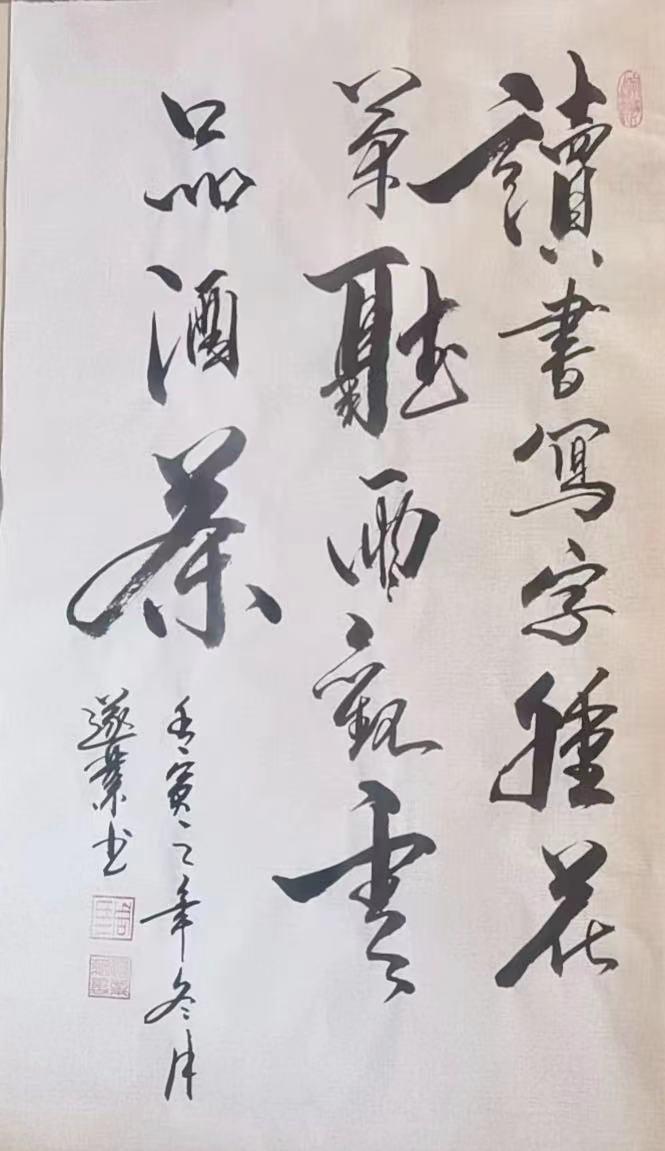 讀書寫字種花
草聽雨觀雲
品酒茶
壬寅之年冬月
遂業书